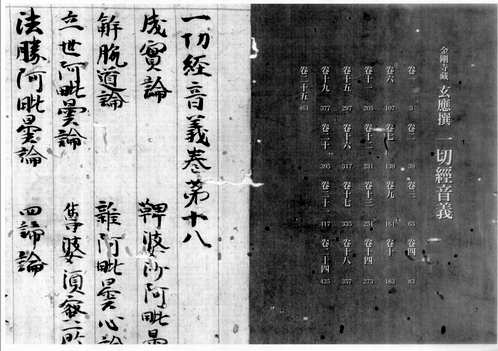 金剛寺蔵 玄應撰 一切經音義
卷一 3 卷二 卷三 63 卷四 83
卷六 107 卷七 139 卷九 161 卷十 183
卷十一 205 卷十二 231 卷十三 251 卷十四 273
卷十五 297 卷十六 317 卷十七 335 卷十八 357
卷十九 377 卷二十 395 卷二十一 417 卷二十四 435
卷二十五 463
一切經音義卷第十八
成實論 鞞婆沙阿毗曇
解脱道論 雜阿毗曇心論
立世阿毗曇論 尊婆須蜜所
法勝阿毗曇論 四諦論